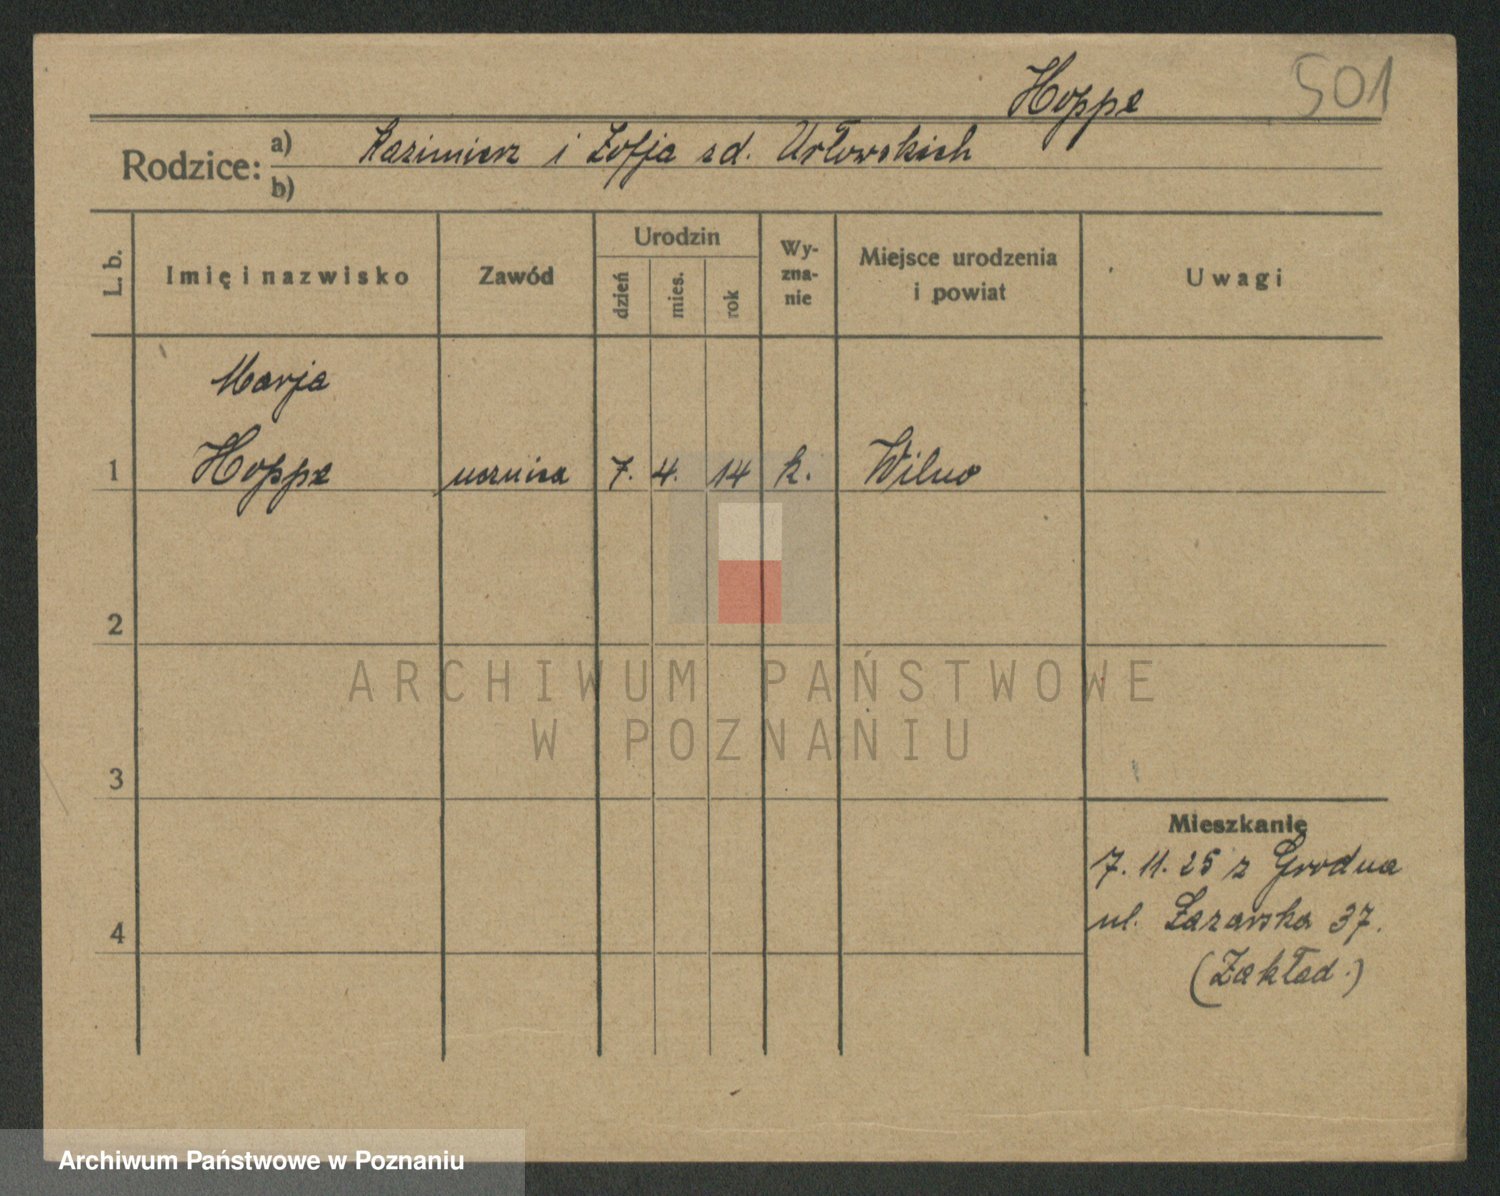 Hoppe 501
Rodzice: a) Kazimierz i Zofja zd.
b)
L. b. Imię i nazwisko Zawód Urodzin dzień mies. rok Wy-zna-nie Miejsce urodzenia i powiat Uwagi
Marja
1 Hoppe ucznica 7. 4. 14 k. Wilno
2
ARCHIWUM PAŃSTWOWE
W POZNANIU
3
Mieszkanie
7. 11. 25 z Grodna
4 ul. 37.
(Zakład.)
Archiwum Państwowe w Poznaniu